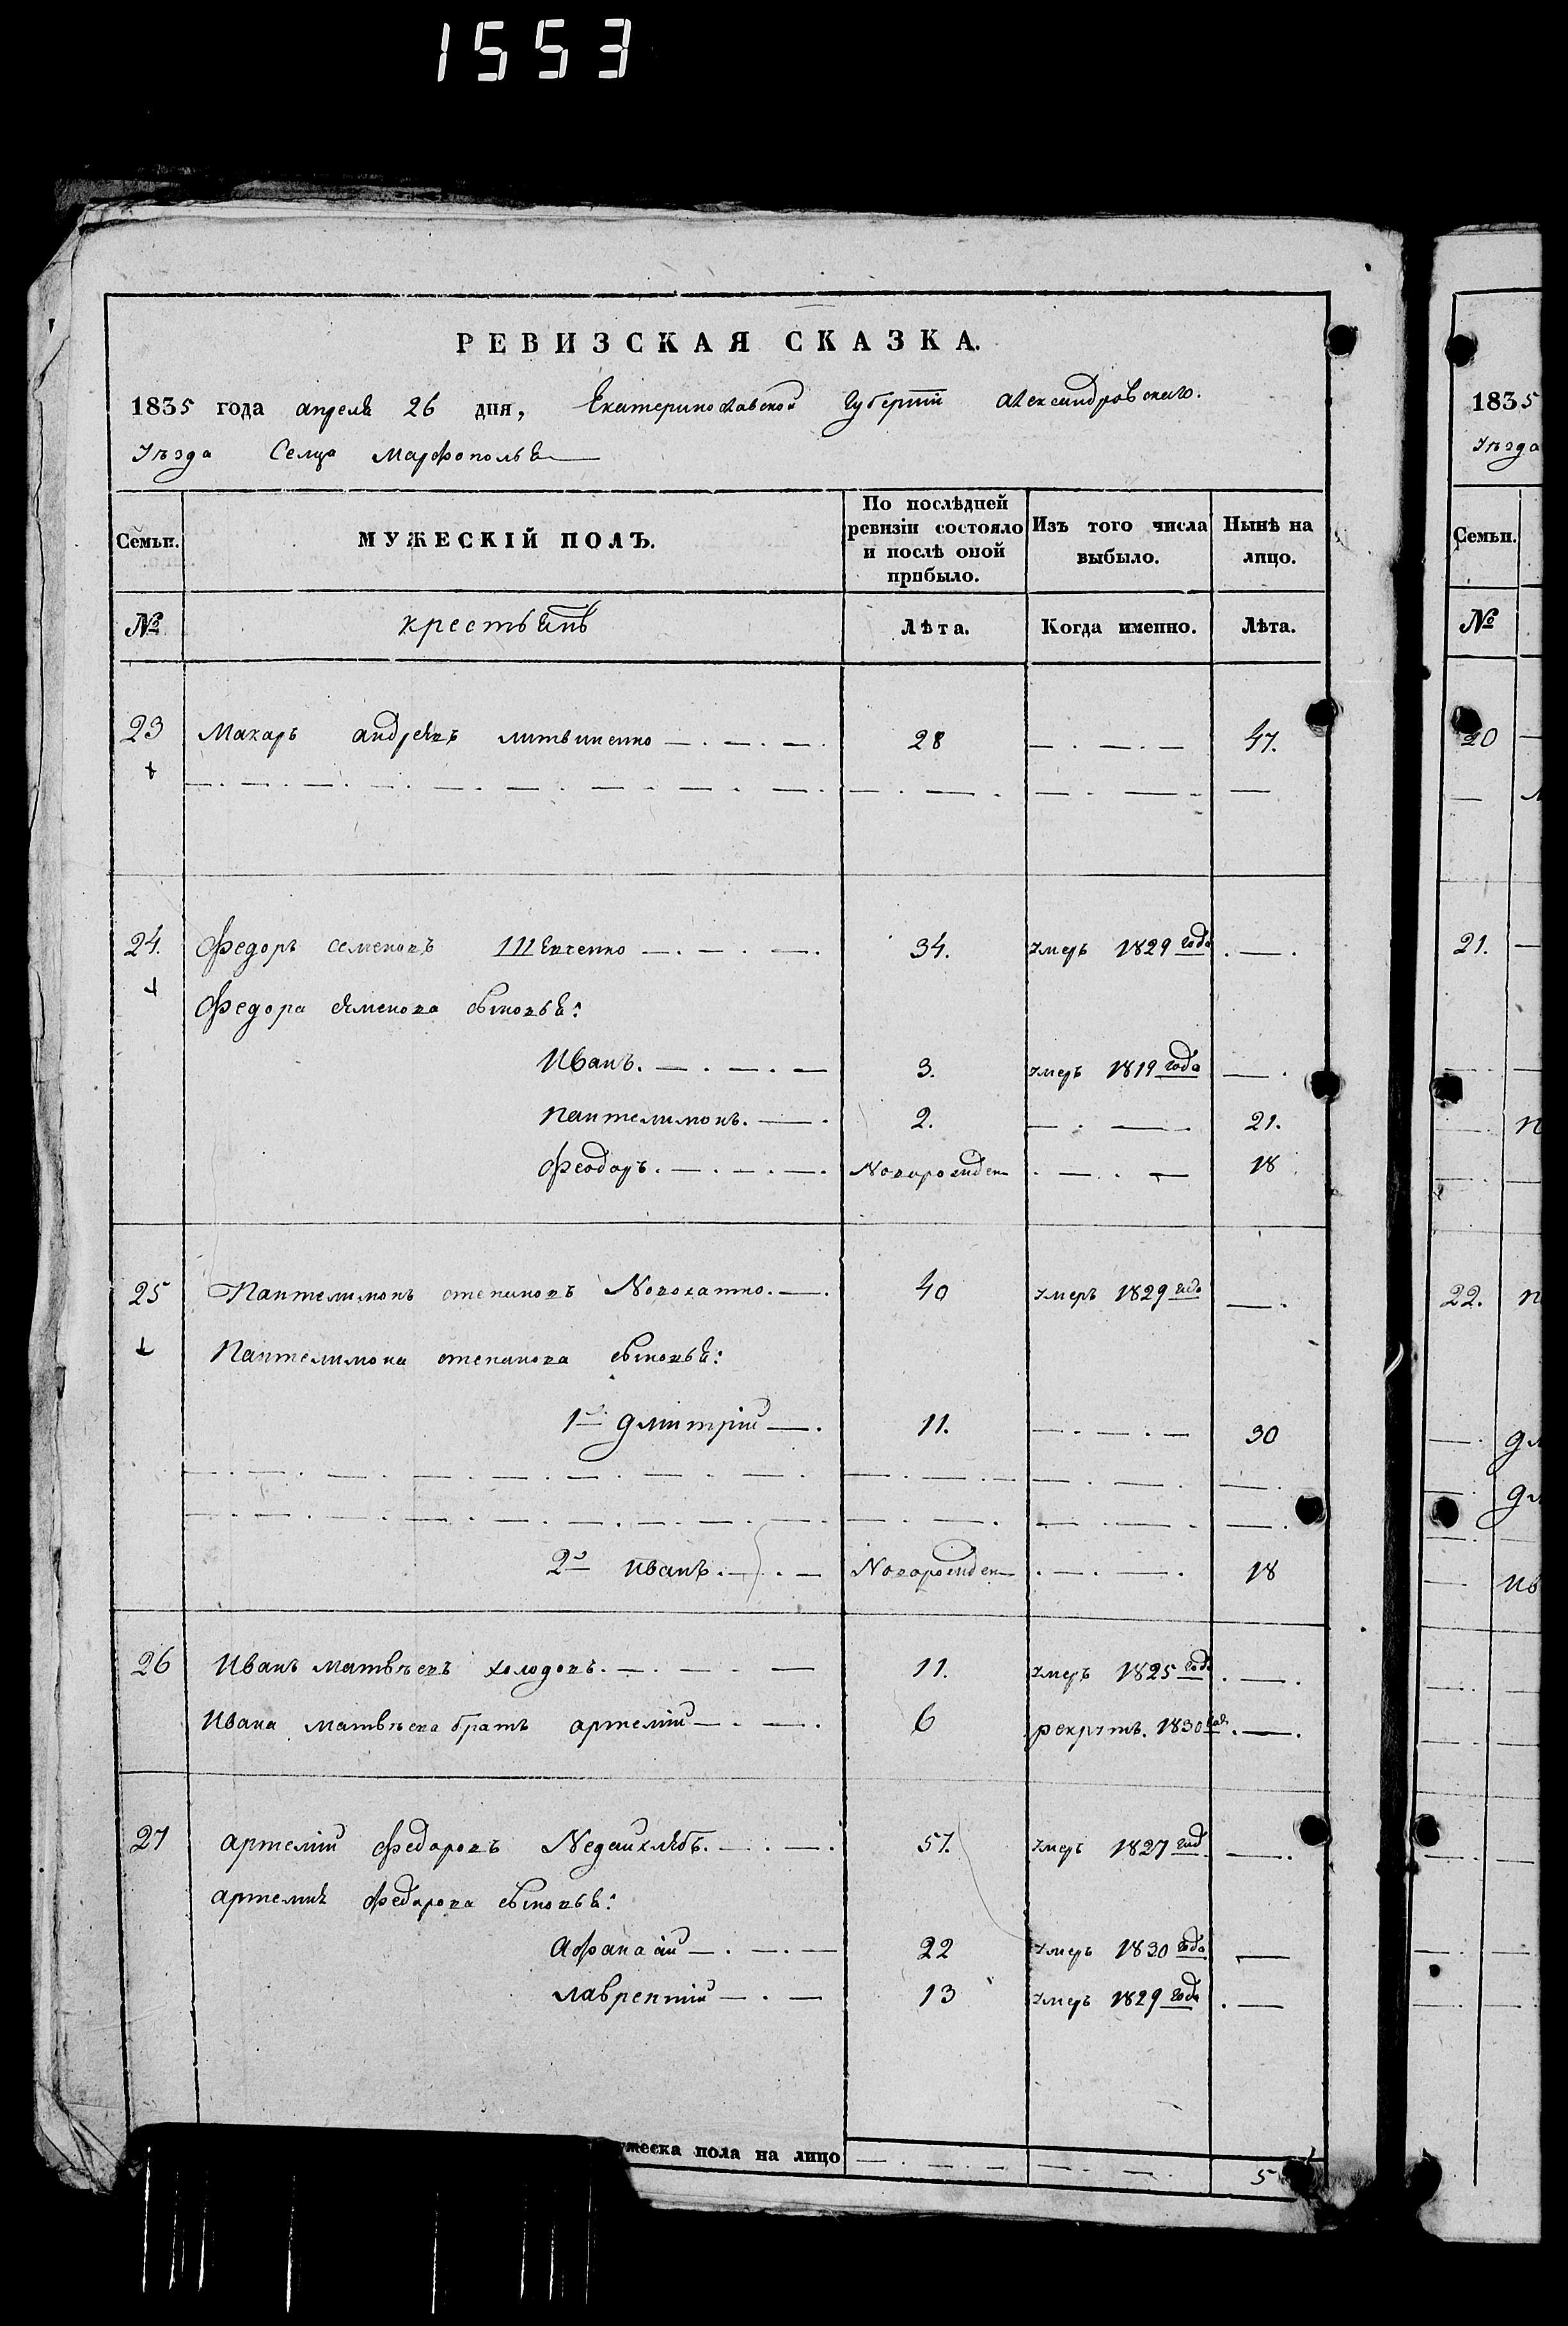 1553
РЕВИЗСКАЯ СКАЗКА.
1835 года апреля 26 дня, Екатеринославской Губернии Александровскаго.
Уѣзда Селца Марфополья
Семьи. МУЖЕСКІЙ ПОЛЪ. По послѣдней ревизіи состояло и послѣ оной прибыло. Изъ того числа выбыло. Нынѣ на лицо.
№ крестьянъ Лѣта. Когда именно. Лѣта.
23 Макаръ андреявъ литвиненко 28 47.
24. Федоръ семеновъ Шевченко 34. умеръ 1829 года
Федора семенова сыновья:
Иванъ. 3. умеръ 1819 года
пантелимонъ. 2. 21.
Феодоръ. Новорожден 18
25 Пантелимонъ степановъ Новохатко. 40 умеръ 1829 года
Пантелимона степанова сыновья:
1й дмитрій 11. 30
2й иванъ. Новорожден 18
26 Иванъ матвѣевъ холодовъ. 11. умеръ 1825 года
Ивана матвѣева братъ артемій 6 рекрутъ. 1830 года
27 артемій Федоровъ Недайхлябъ. 57. умеръ 1827 год
артемия Федорова сыновья:
Афанасій 22 умеръ 1830 года
лаврентій 13 умеръ 1829 года
ужеска пола на лицо 5
1835
Уѣзда
Семьи.
№
20
21.
22.